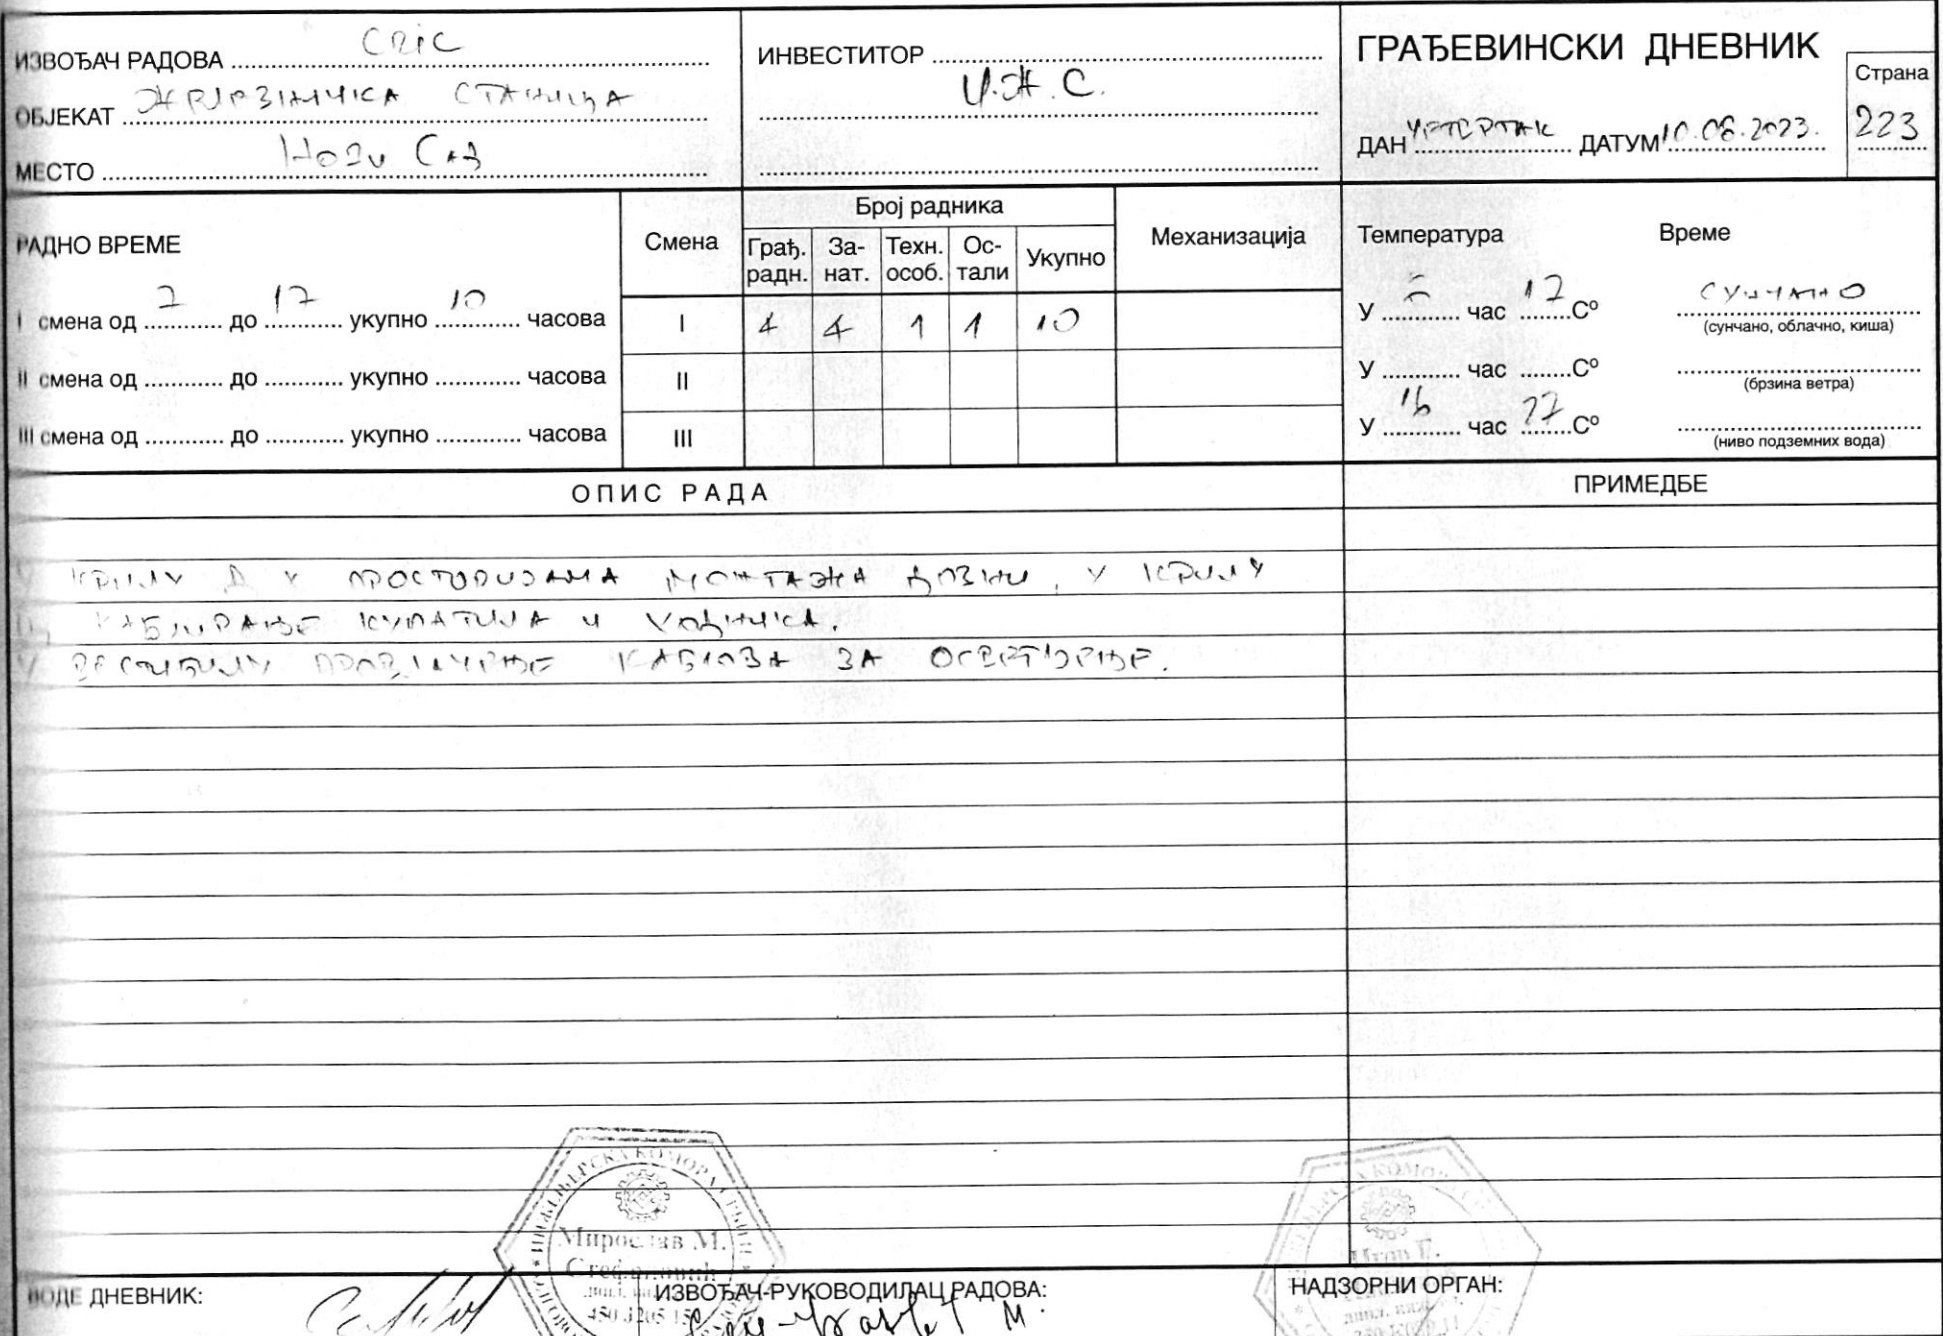 ИЗВОЂАЧ РАДОВА CRIC
ОБЈЕКАТ ЖЕЛЕЗНИЧКА СТАНИЦА
МЕСТО НОВИ САД
ИНВЕСТИТОР
И.Ж.С.
ГРАЂЕВИНСКИ ДНЕВНИК
Страна
223
ДАН ЧЕТВРТАК ДАТУМ 10.08.2023.
РАДНО ВРЕМЕ
I смена од 7 до 17 укупно 10 часова
II смена од до укупно часова
III смена од до укупно часова
Смена
Број радника
Грађ. радн.
За-нат.
Техн. особ.
Ос-тали
Укупно
Механизација
I 4 4 1 1 10
II
III
Температура Време
У час 17 С° СУНЧАНО
(сунчано, облачно, киша)
У час С°
(брзина ветра)
У 16 час 27 С°
(ниво подземних вода)
ОПИС РАДА
ПРИМЕДБЕ
У КРИЛУ Д У ПРОСТОРИЈАМА МОНТАЖА ДОЗНИ, У КРИЛУ
КАБЛИРАЊЕ КУПАТИЛА И ХОДНИКА.
У ВЕСТИБИЛУ ПРОВЛАЧЕЊЕ КАБЛОВА ЗА ОСВЕТЉЕЊЕ.
ИНЖЕЊЕРСКА КОМОРА СРБИЈЕ
Мирослав М.
Стефановић
ВОДЕ ДНЕВНИК:
ИЗВОЂАЧ-РУКОВОДИЛАЦ РАДОВА:
НАДЗОРНИ ОРГАН: